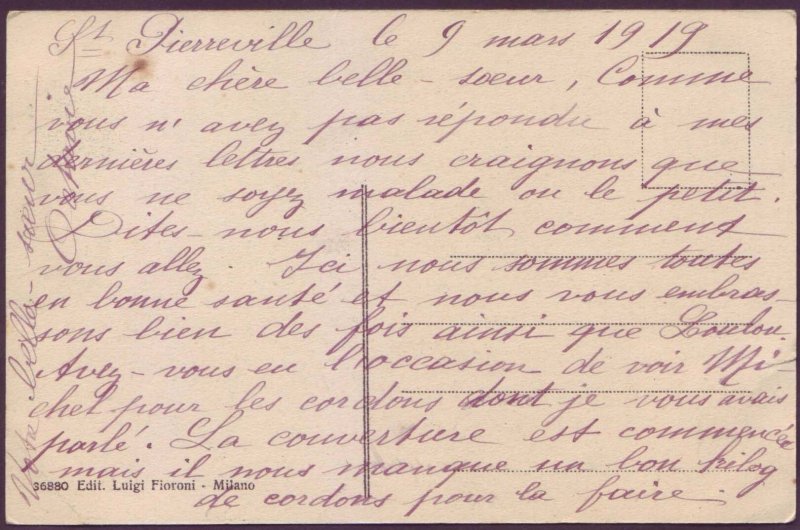 St Pierreville le 9 mars 1919
Ma chère belle-sœur, Comme
vous n'avez pas répondu à mes
dernières lettres nous craignons que
vous ne soyez malade ou le petit.
Dites-nous bientôt comment
vous allez. Ici nous sommes toutes
en bonne santé et nous vous embras-
sons bien des fois ainsi que Loulou.
Avez-vous eu l'occasion de voir Mi-
chel pour les cordons dont je vous avais
parlé. La couverture est commencée
mais il nous manque un bon kilog
de cordons pour la faire.
36880 Edit. Luigi Fioroni - Milano
Votre belle-sœur